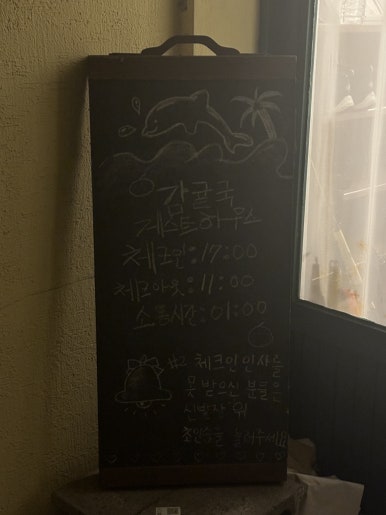 감귤국
게스트하우스
체크인:17:00
체크아웃:11:00
소등시간:01:00
체크인 인사를
못 받으신 분들은
신발장 위
초인종을 눌러주세요